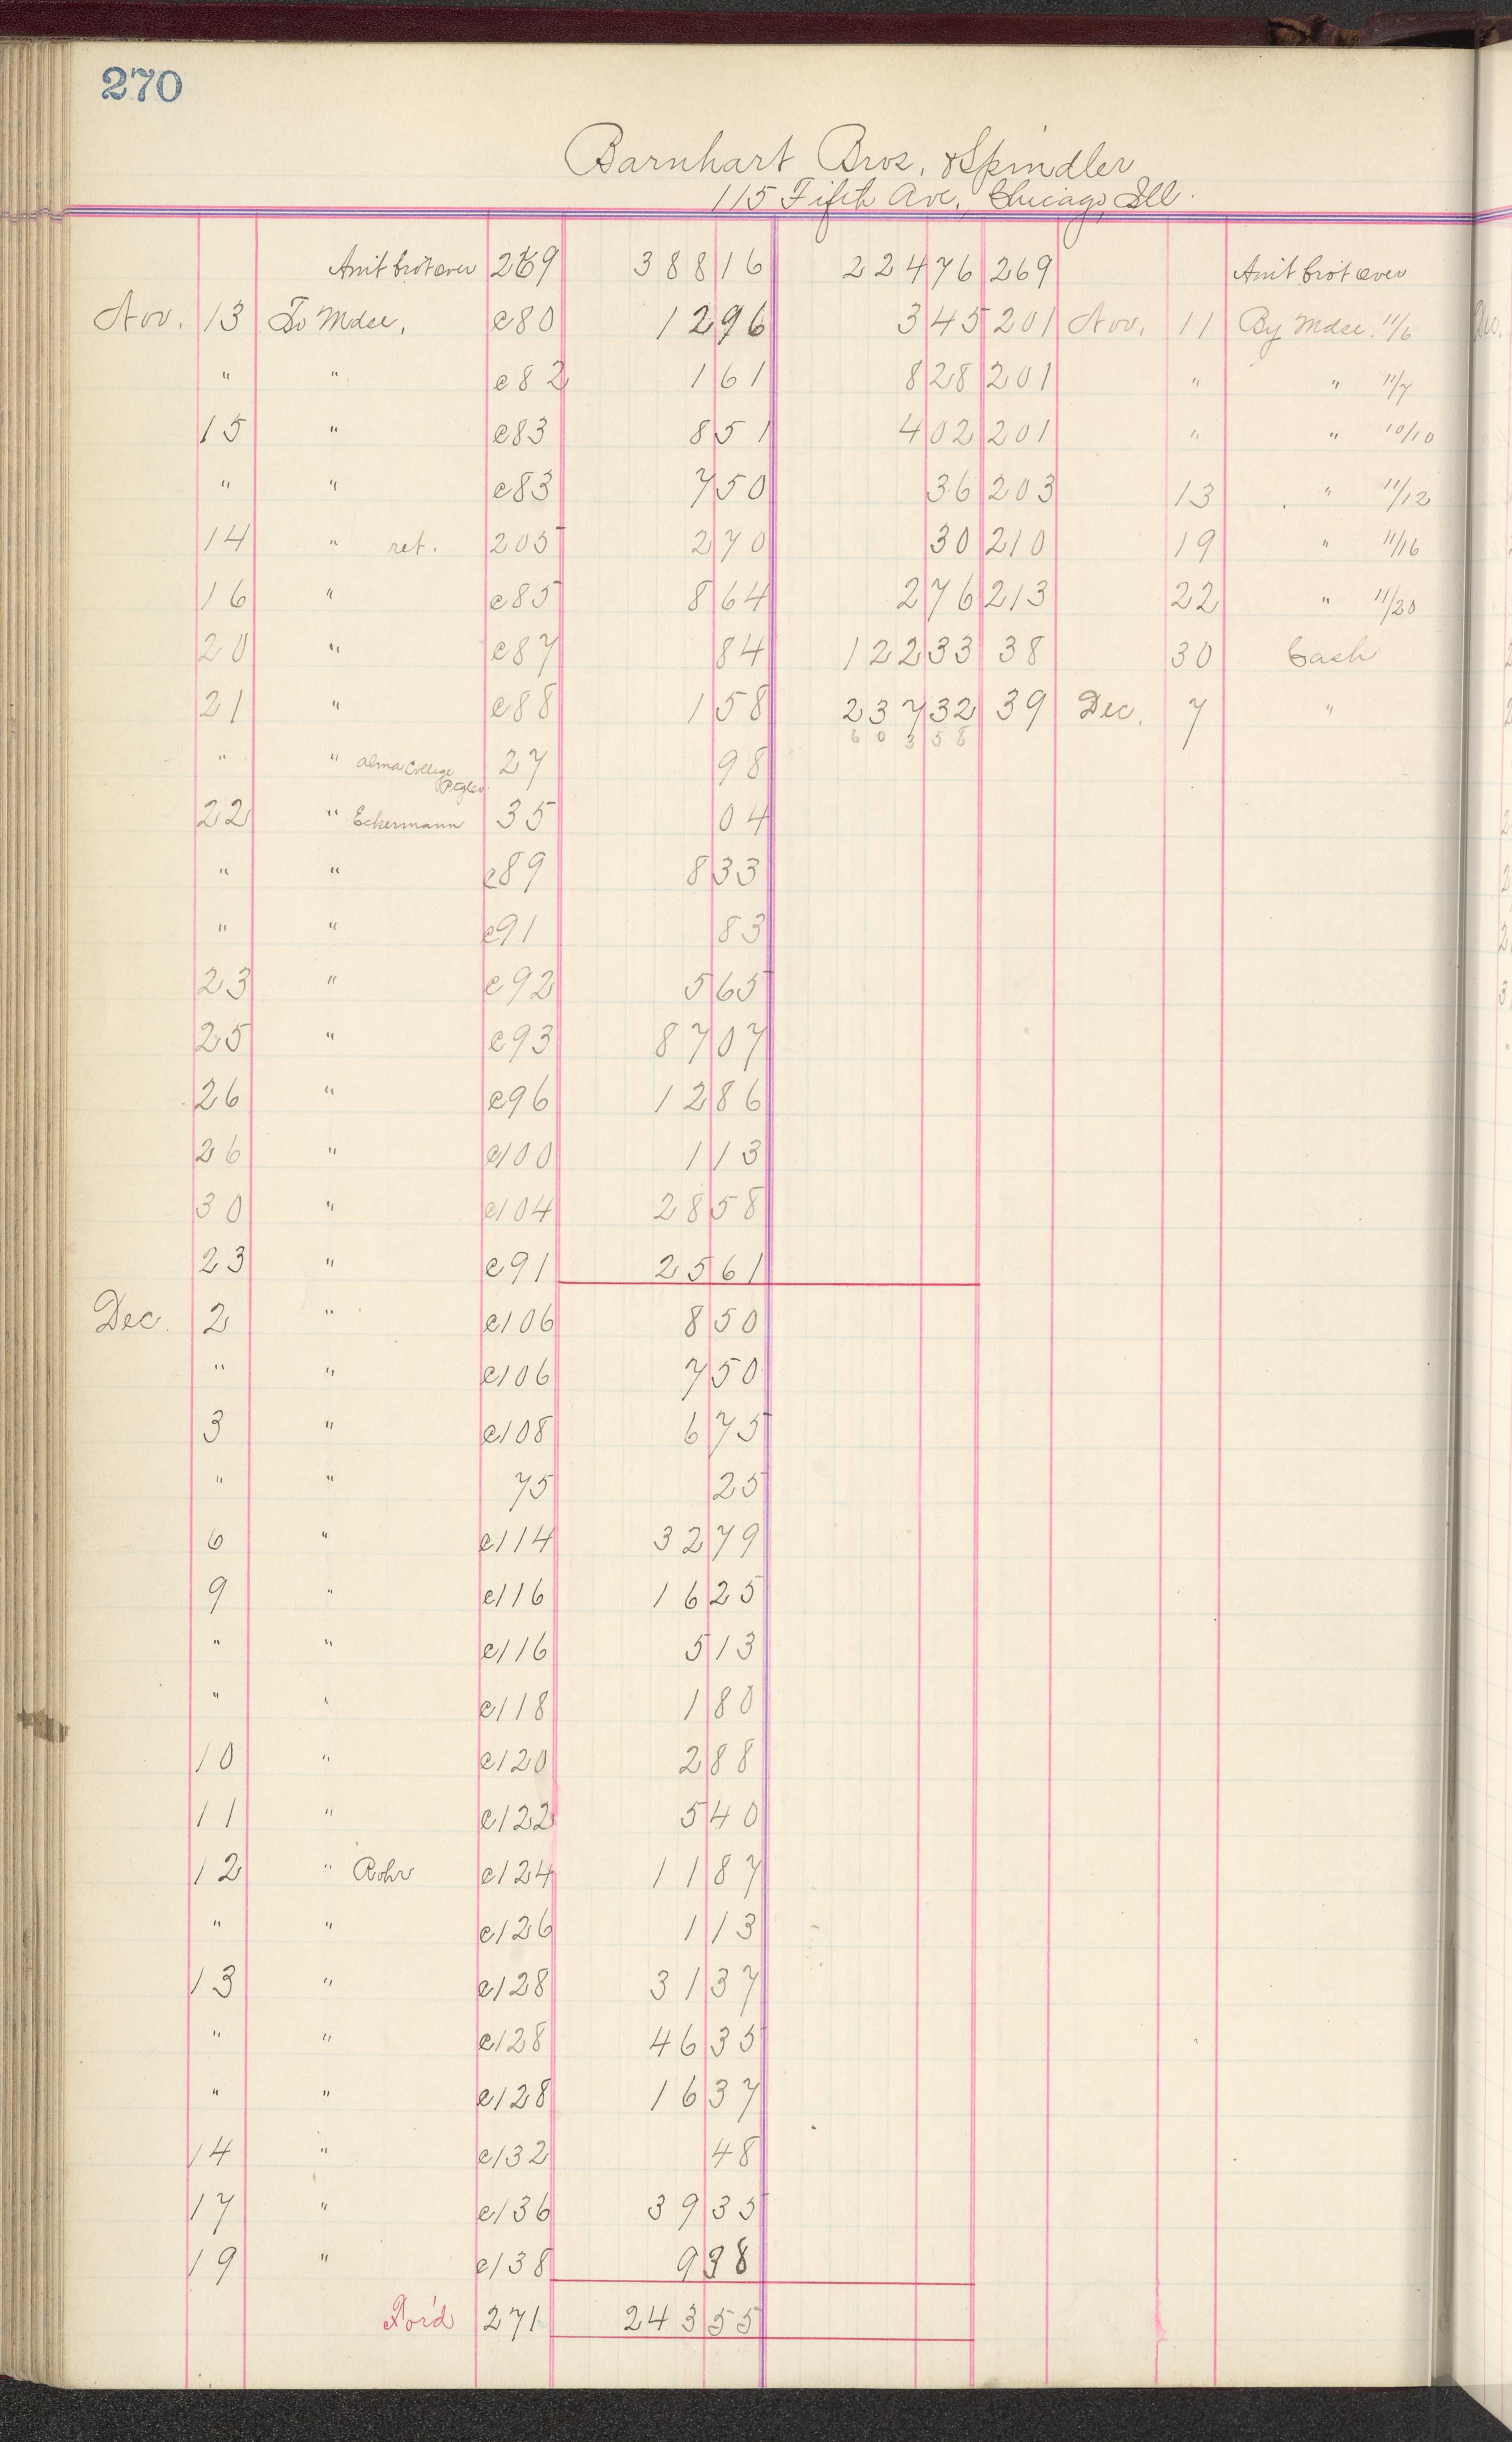 270
Barnhart Bros. & Spindler
115 Fifth Ave., Chicago, Ill.
Amt brot over 269 388 16 224 76 269 Amt brot over
Nov. 13 To Mdse. c80 12 96 3 45 201 Nov. 11 By Mdse. 11/6
" " c82 1 61 8 28 201 " " 11/7
15 " c83 8 51 4 02 201 " " 10/10
" " c83 7 50 36 203 13 " 11/12
14 " ret. 205 2 70 30 210 19 " 11/16
16 " c85 8 64 2 76 213 22 " 11/20
20 " c87 84 122 33 38 30 Cash
21 " c88 1 58 237 32 39 Dec. 7 "
603 58
" " Alma College 27 98
22 " Eckermann 35 04
" " c89 8 33
" " c91 83
23 " c92 5 65
25 " c93 87 07
26 " c96 12 86
26 " c100 1 13
30 " c104 28 58
23 " c91 25 61
Dec. 2 " c106 8 50
" " c106 7 50
3 " c108 6 75
" " 75 25
6 " c114 32 79
9 " c116 16 25
" " c116 5 13
" " c118 1 80
10 " c120 2 88
11 " c122 5 40
12 " Rohr c124 11 87
" " c126 1 13
13 " c128 31 37
" " c128 46 35
" " c128 16 37
14 " c132 48
17 " c136 39 35
19 " c138 9 38
For'd 271 243 55